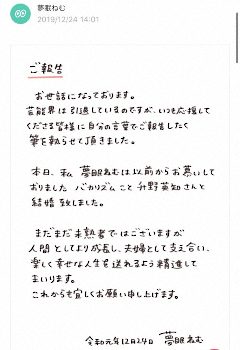 夢眠ねむ
2019/12/24 14:01
ご報告
お世話になっております。
芸能界は引退しているのですが、いつも応援して
くださる皆様に自分の言葉でご報告したく
筆を執らせて頂きました。
本日、私 夢眠ねむは以前からお慕いして
おりました バカリズムこと 升野英知さんと
結婚 致しました。
まだまだ未熟者ではございますが
人間としてより成長し、夫婦として支え合い、
楽しく幸せな人生を送れるよう精進して
まいります。
これからも宜しくお願い申し上げます。
令和元年12月24日 夢眠ねむ